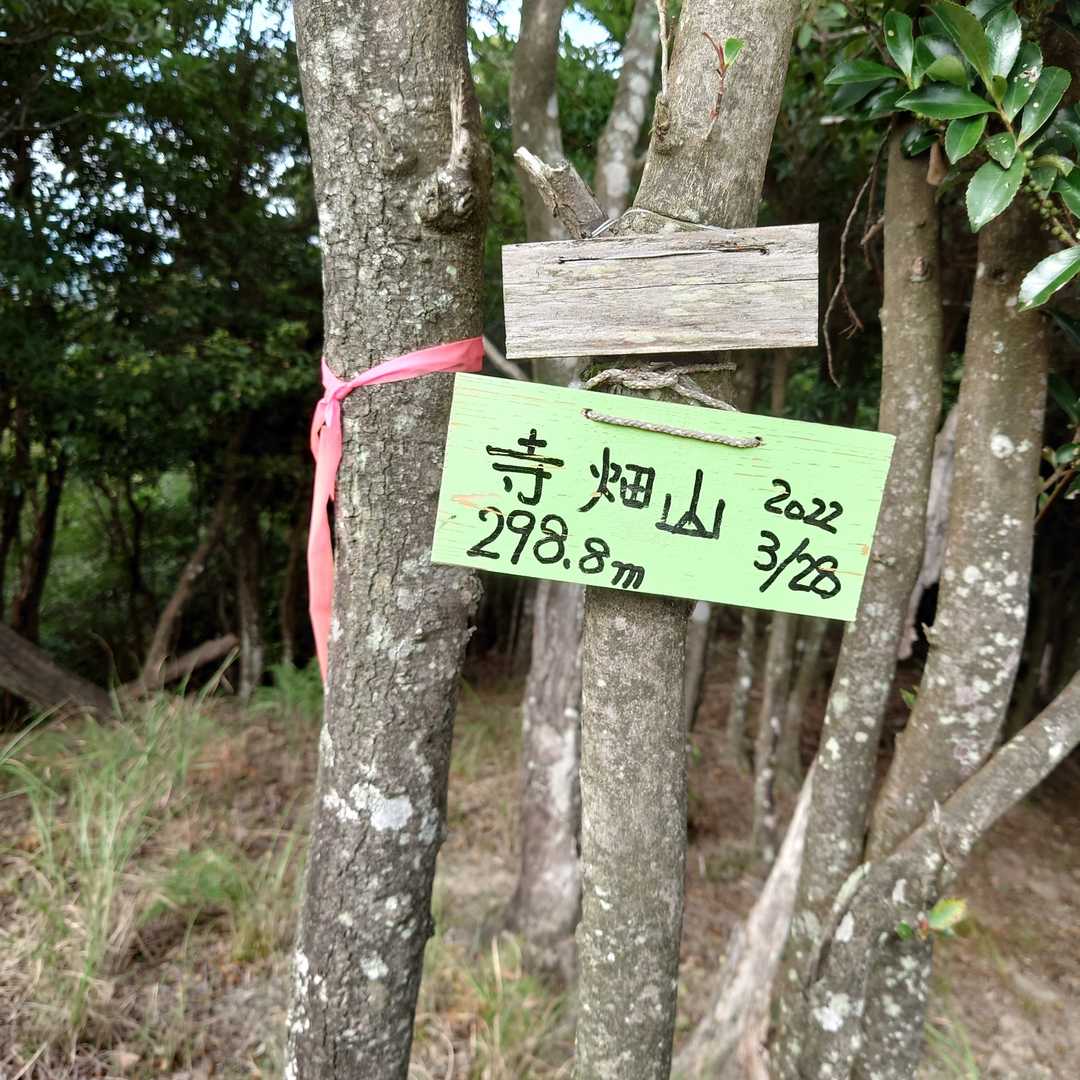 寺畑山 2022
298.8m 3/28